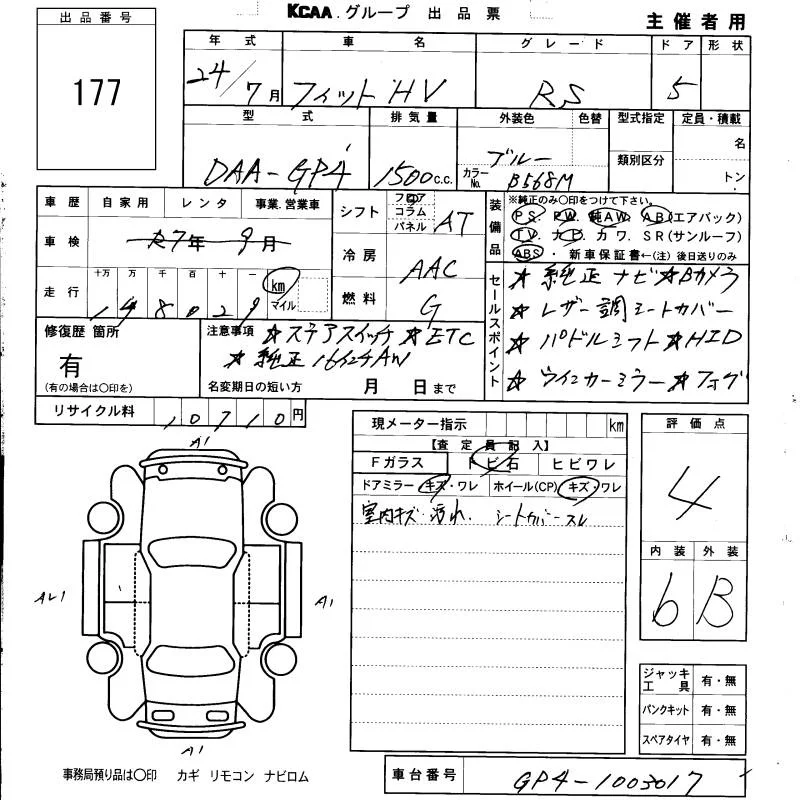 KCAA. グループ 出品票
主催者用
出品番号
177
年式 車名 グレード ドア 形状
24/7月 フィット HV RS 5
型式 排気量 外装色 色替 型式指定 定員・積載
DAA-GP4 1500c.c. ブルー 名
カラーNo. B568M 類別区分 トン
車歴 自家用 レンタ 事業.営業車
シフト フロア コラム パネル AT
装備品 ※純正のみ〇印をつけて下さい。
PS. PW. 純AW. AB(エアバック)
TV. カセ カワ. SR(サンルーフ)
ABS. 新車保証書←(注)後日送りのみ
車検 R7年 9月
冷房 AAC
走行 十万 万 千 百 十 一 km マイル
148029
燃料 G
セールスポイント
☆純正ナビ☆Bカメラ
☆レザー調シートカバー
☆パドルシフト☆HID
☆ウインカーミラー☆フォグ
修復歴 箇所
有
(有の場合は〇印を)
注意事項 ☆ステアスイッチ ☆ETC
☆純正16インチAW
名変期日の短い方 月 日まで
リサイクル料 10710円
現メーター指示 km
【査定員記入】
Fガラス トビ石 ヒビワレ
ドアミラー キズ・ワレ ホイール(CP) キズ・ワレ
室内キズ 汚れ. シートカバースレ
評価点
4
内装 外装
6 B
A1
AL1
A1
A1
ジャッキ工具 有・無
パンクキット 有・無
スペアタイヤ 有・無
事務局預り品は〇印 カギ リモコン ナビロム
車台番号 GP4-1003017